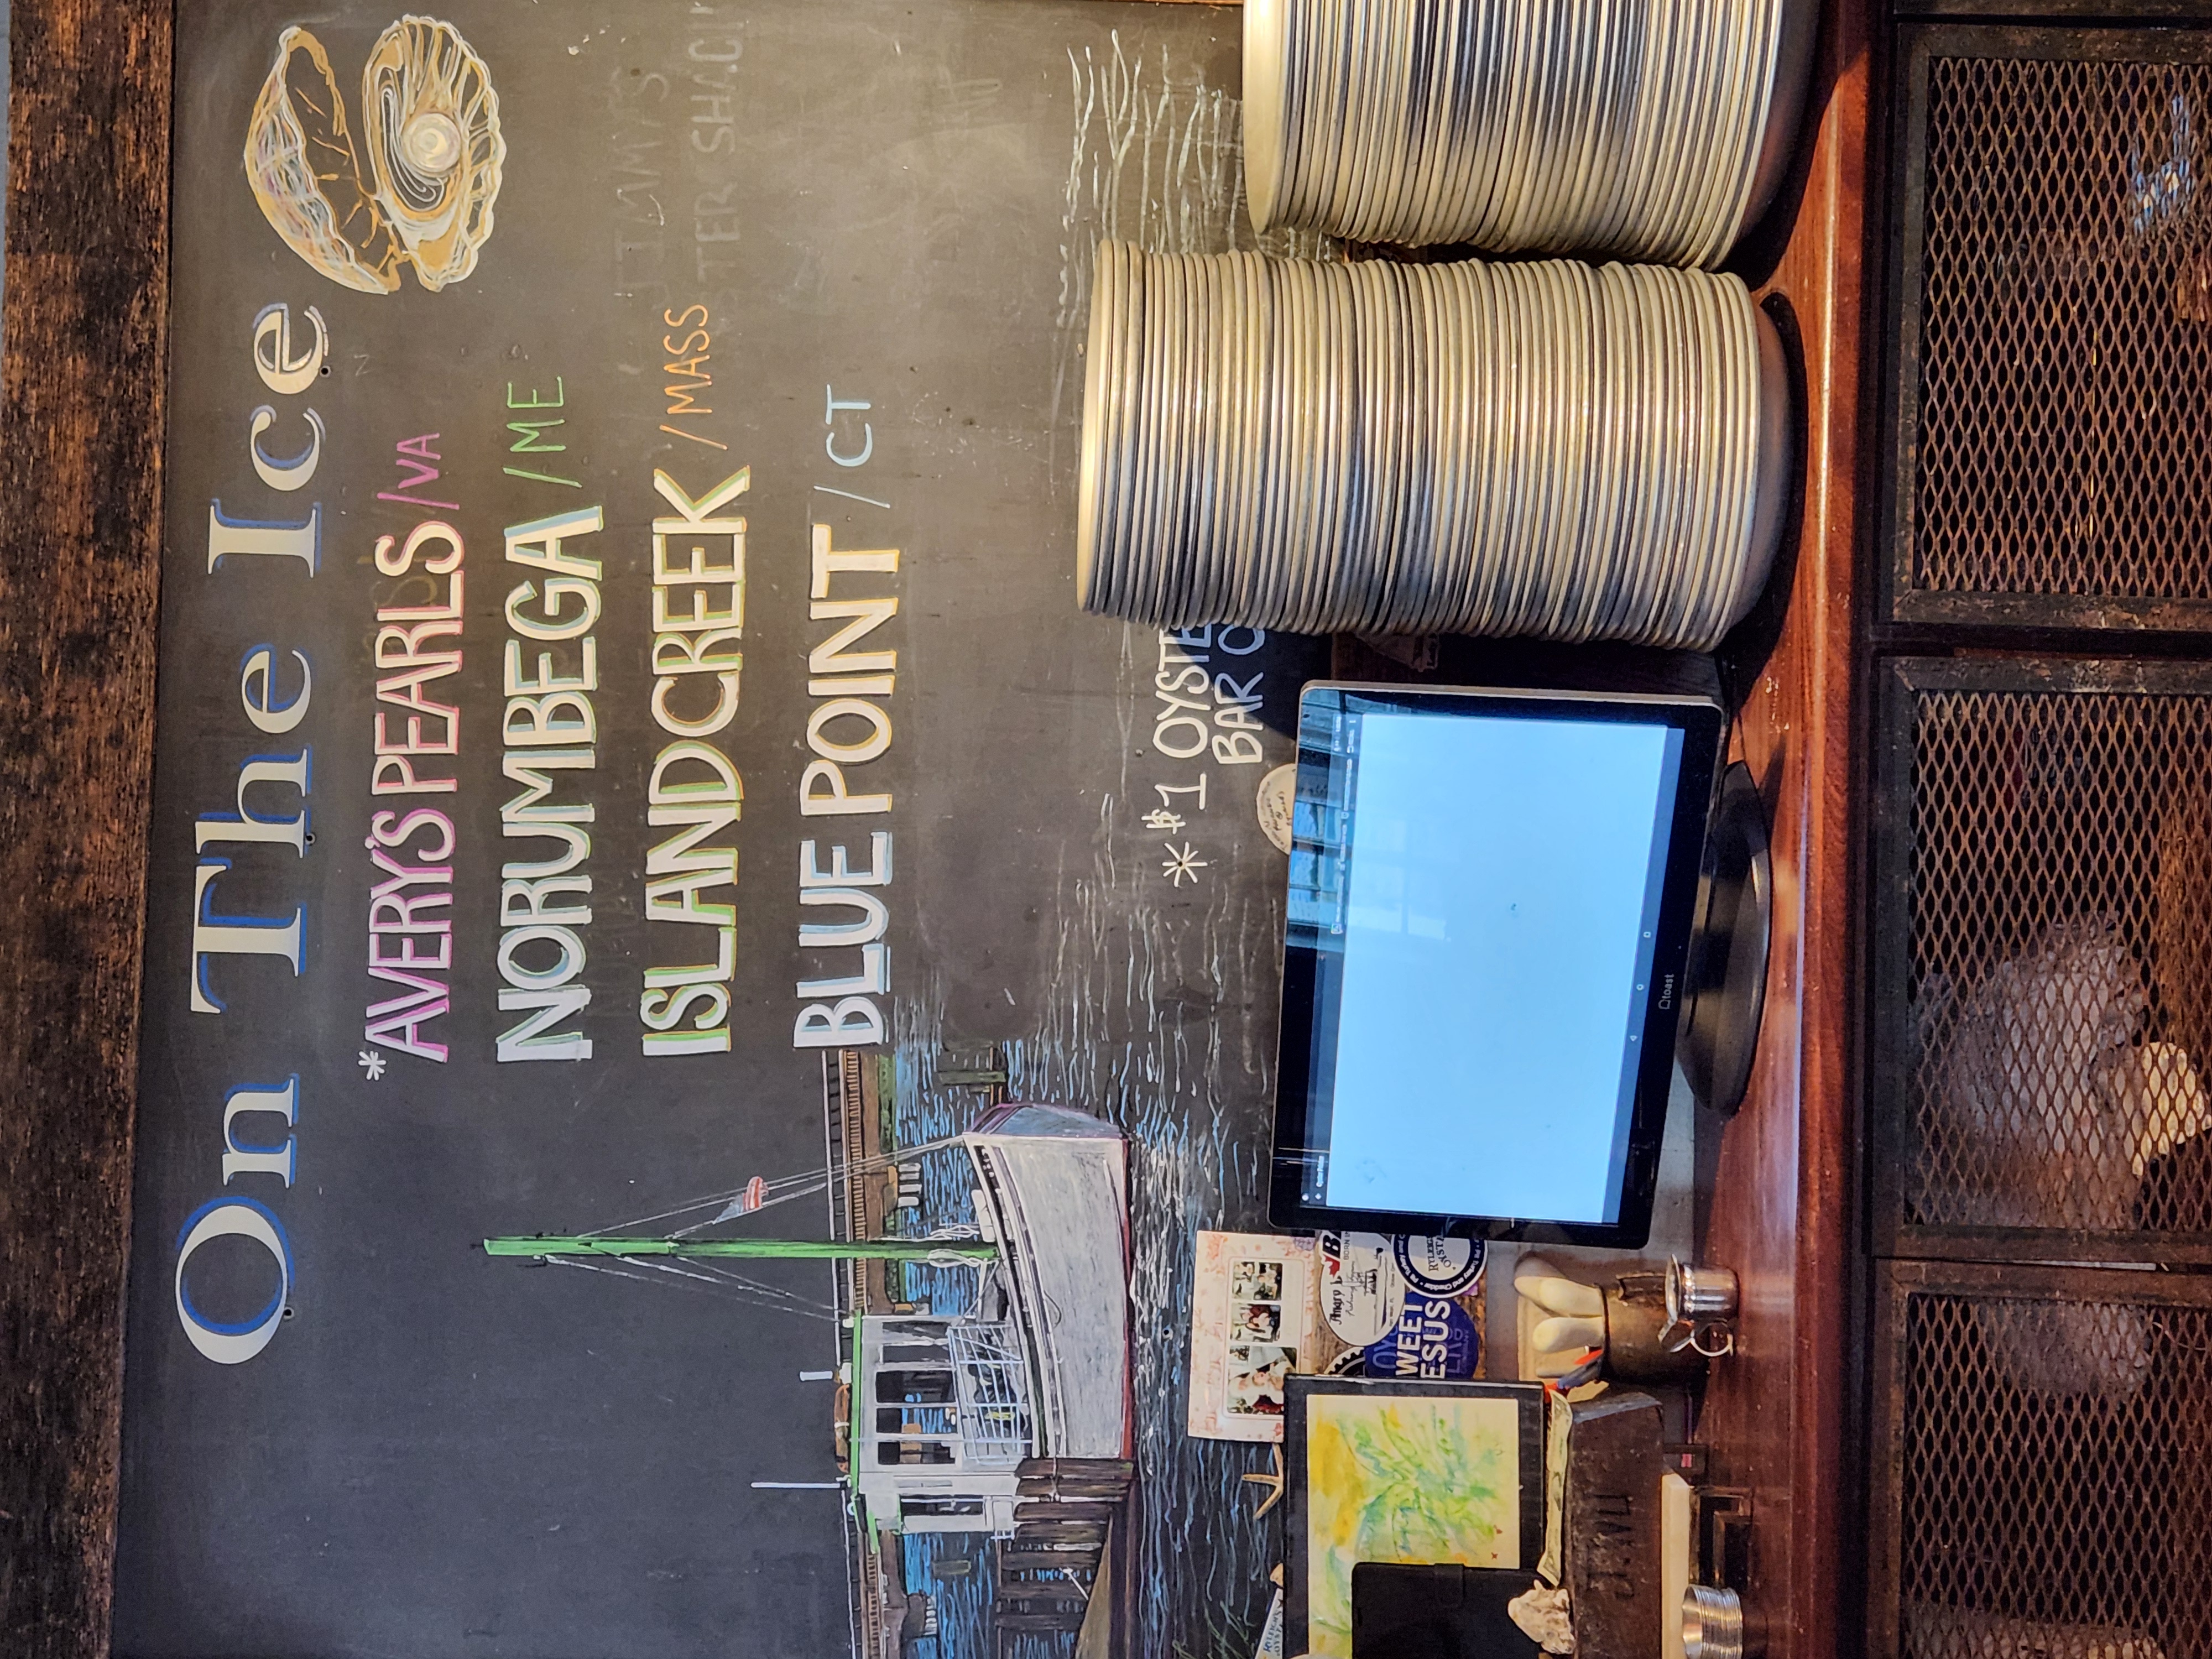 On The Ice
*AVERY'S PEARLS/VA
NORUMBEGA /ME
ISLAND CREEK /MASS
BLUE POINT / CT
*$1 OYSTE
BAR O
toast
WEET
ESUS
Angry